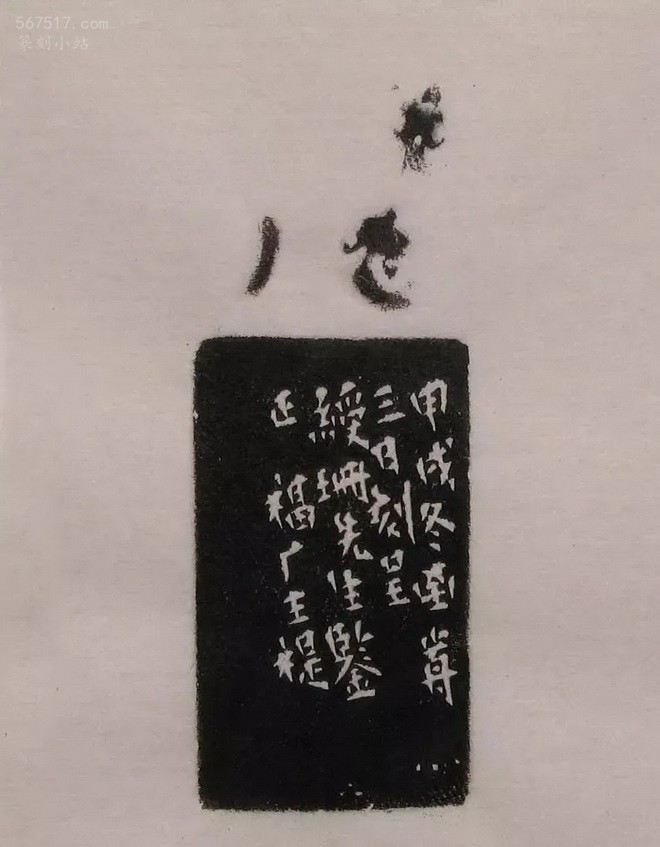 567517.com
篆刻小站
甲戌冬至前
三日刻呈
綬珊先生鑒
正 福厂王禔